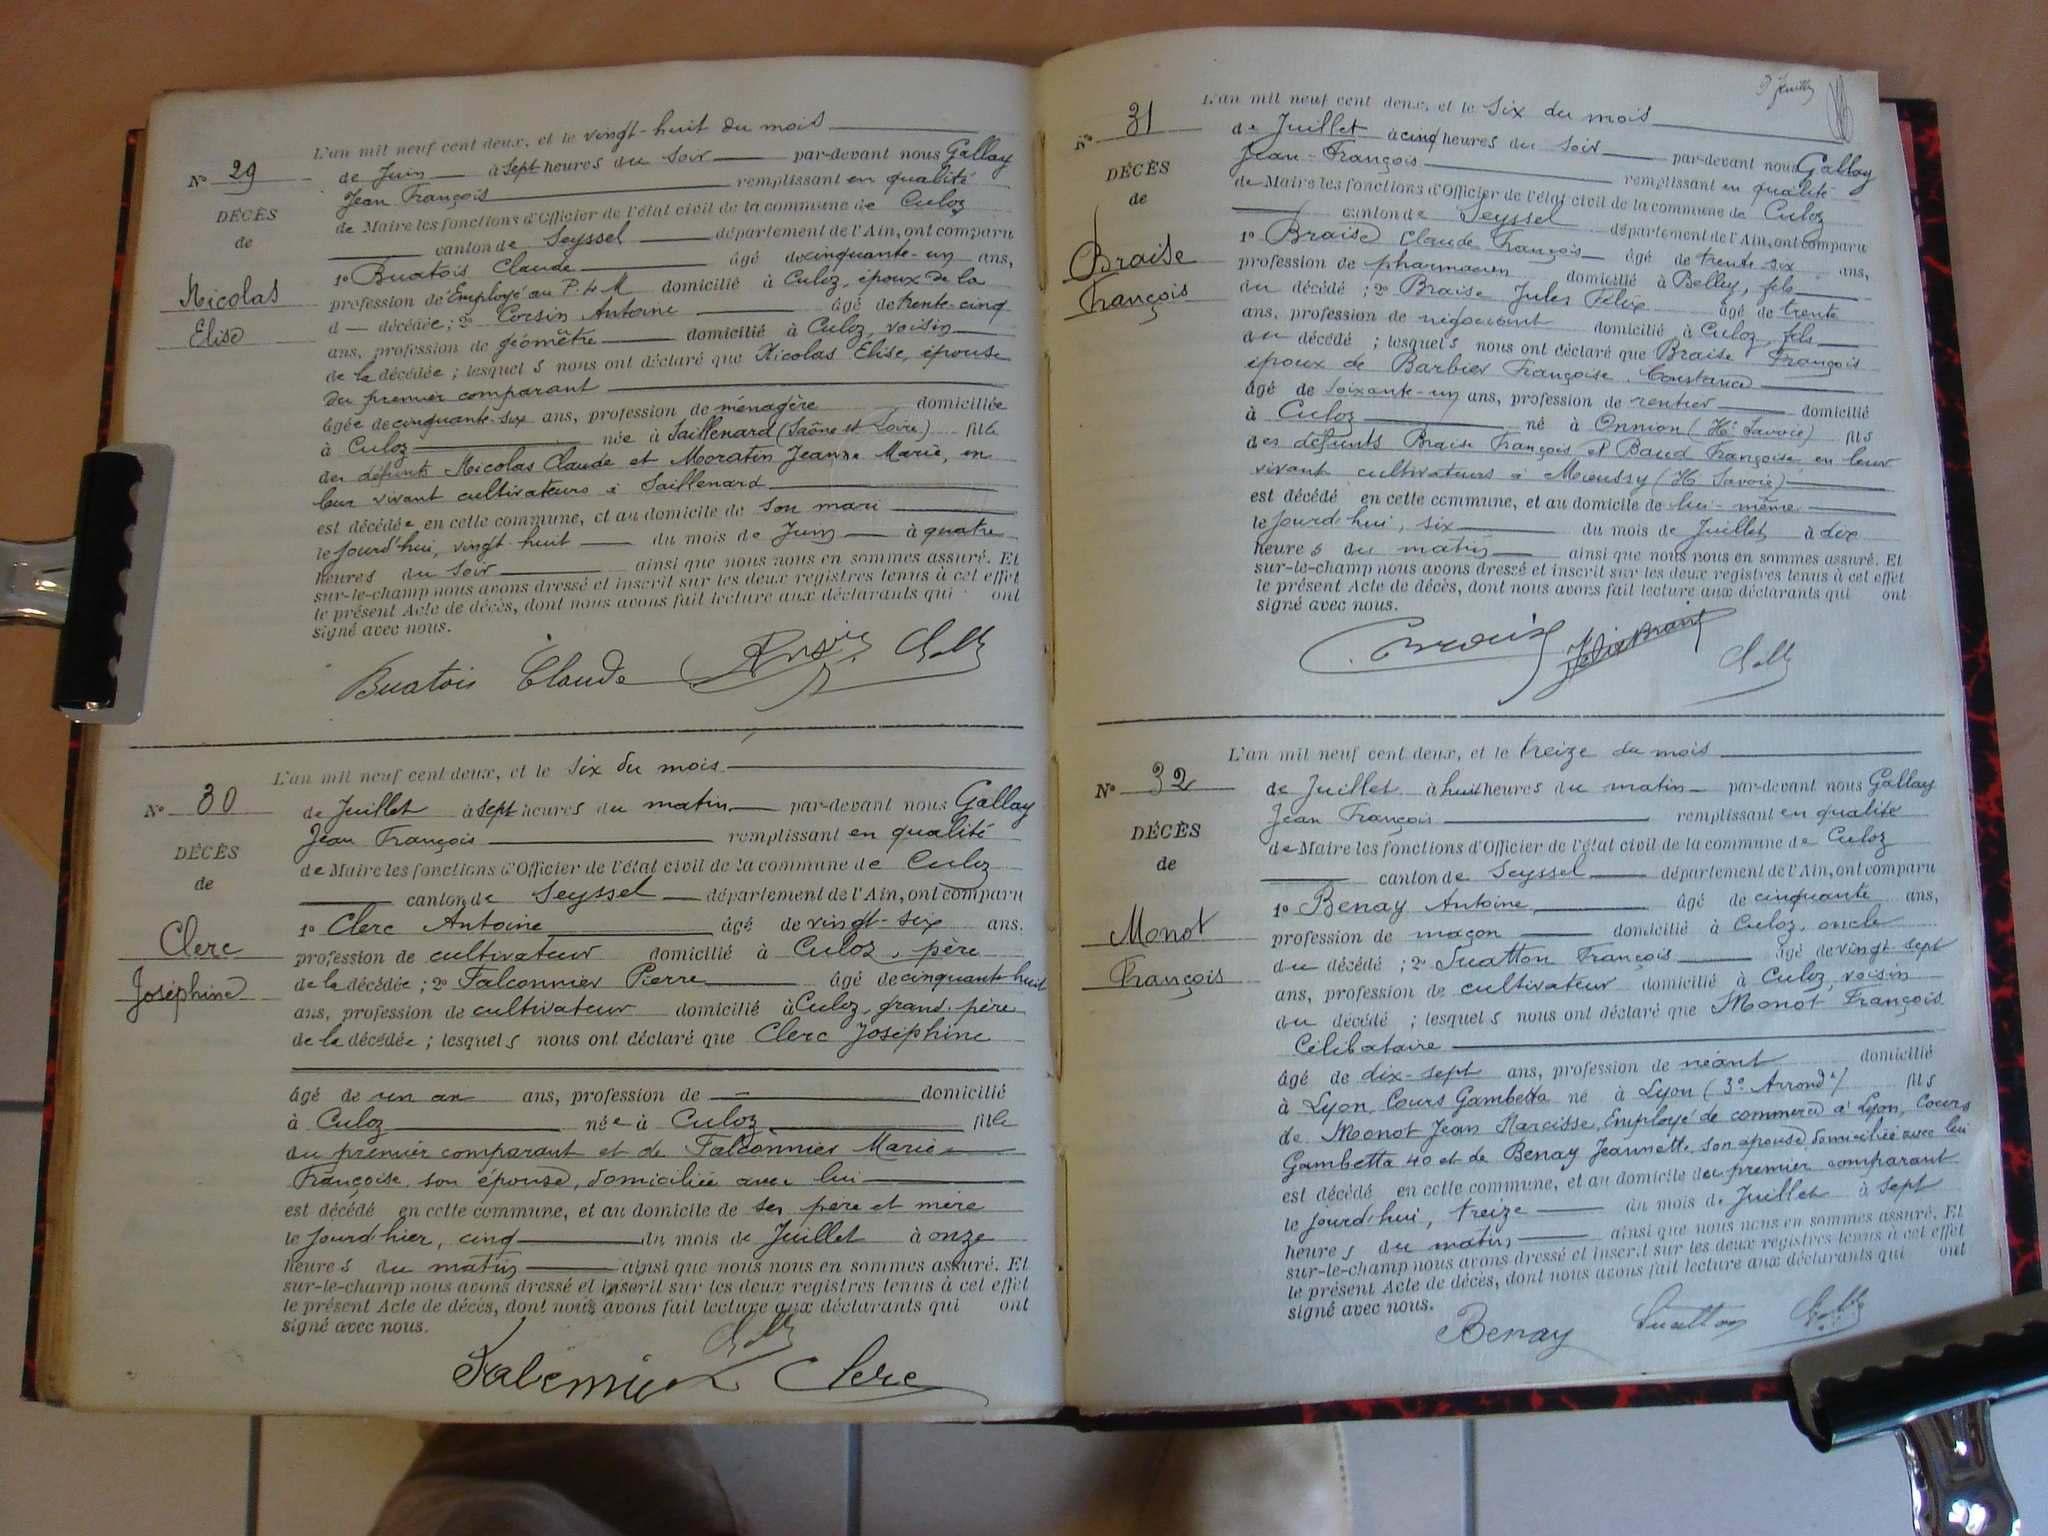 L'an mil neuf cent deux, et le vingt-huit du mois
Nº 29
de Juin à sept heures du soir par-devant nous Gallay
Jean François remplissant en qualité
DÉCÈS
de Maire les fonctions d'Officier de l'état civil de la commune de Culoz
de
canton de Seyssel département de l'Ain, ont comparu
1º Buatois Claude âgé de cinquante-un ans,
Nicolas
profession de Employé au P.L.M domicilié à Culoz, époux de la
Elise
d décédée; 2º Corsin Antoine âgé de trente-cinq
ans, profession de géomètre domicilié à Culoz, voisin
de la décédée; lesquels nous ont déclaré que Nicolas Elise, épouse
du premier comparant
âgée de cinquante-six ans, profession de ménagère domiciliée
à Culoz née à Saillenard (Saône et Loire) fille
des défunts Nicolas Claude et Moratin Jeanne Marie, en
leur vivant cultivateurs à Saillenard
est décédée en cette commune, et au domicile de son mari
le jourd'hui, vingt-huit du mois de Juin à quatre
heures du soir ainsi que nous nous en sommes assuré. Et
sur-le-champ nous avons dressé et inscrit sur les deux registres tenus à cet effet
le présent Acte de décès, dont nous avons fait lecture aux déclarants qui ont
signé avec nous.
Buatois Claude
L'an mil neuf cent deux, et le six du mois
Nº 30
de Juillet à sept heures du matin par-devant nous Gallay
Jean François remplissant en qualité
DÉCÈS
de Maire les fonctions d'Officier de l'état civil de la commune de Culoz
de
canton de Seyssel département de l'Ain, ont comparu
1º Clerc Antoine âgé de vingt-six ans.
Clerc
profession de cultivateur domicilié à Culoz, père
Joséphine
de la décédée; 2º Falconnier Pierre âgé de cinquante huit
ans, profession de cultivateur domicilié à Culoz, grand-père
de la décédée; lesquels nous ont déclaré que Clerc Joséphine
âgé de un an ans, profession de domicilié
à Culoz née à Culoz fille
du premier comparant et de Falconnier Marie
Françoise son épouse, domiciliée avec lui
est décédé en cette commune, et au domicile de ses père et mère
le jourd'hier, cinq du mois de Juillet à onze
heures du matin ainsi que nous nous en sommes assuré. Et
sur-le-champ nous avons dressé et inscrit sur les deux registres tenus à cet effet
le présent Acte de décès, dont nous avons fait lecture aux déclarants qui ont
signé avec nous.
Clerc
9 Juillet
L'an mil neuf cent deux, et le six du mois
Nº 31
de Juillet à cinq heures du soir par-devant nous Gallay
Jean-François remplissant en qualité
DÉCÈS
de Maire les fonctions d'Officier de l'état civil de la commune de Culoz
de
canton de Seyssel département de l'Ain, ont comparu
1º Braise Claude François âgé de trente-six ans,
Braise
profession de pharmacien domicilié à Belley, fils
François
du décédé; 2º Braise Jules Félix âgé de trente
ans, profession de négociant domicilié à Culoz, fils
du décédé; lesquels nous ont déclaré que Braise François
époux de Barbier Françoise Constance
âgé de soixante-un ans, profession de rentier domicilié
à Culoz né à Onnion (Hte Savoie) fils
des défunts Braise François et Baud Françoise, en leur
vivant cultivateurs à Mieussy (Hte Savoie)
est décédé en cette commune, et au domicile de lui-même
le jourd'hui, six du mois de Juillet à dix
heures du matin ainsi que nous nous en sommes assuré. Et
sur-le-champ nous avons dressé et inscrit sur les deux registres tenus à cet effet
le présent Acte de décès, dont nous avons fait lecture aux déclarants qui ont
signé avec nous.
L'an mil neuf cent deux, et le treize du mois
Nº 32
de Juillet à huit heures du matin par-devant nous Gallay
Jean François remplissant en qualité
DÉCÈS
de Maire les fonctions d'Officier de l'état civil de la commune de Culoz
de
canton de Seyssel département de l'Ain, ont comparu
1º Benay Antoine âgé de cinquante ans,
Monot
profession de maçon domicilié à Culoz, oncle
François
du décédé; 2º Suatton François âgé de vingt-sept
ans, profession de cultivateur domicilié à Culoz, voisin
du décédé; lesquels nous ont déclaré que Monot François
Célibataire
âgé de dix-sept ans, profession de néant domicilié
à Lyon, Cours Gambetta né à Lyon (3e Arrondt) fils
de Monot Jean Narcisse, Employé de commerce à Lyon, Cours
Gambetta 40 et de Benay Jeannette son épouse domiciliée avec lui
est décédé en cette commune, et au domicile du premier comparant
le jourd'hui, treize du mois de Juillet à sept
heures du matin ainsi que nous nous en sommes assuré. Et
sur-le-champ nous avons dressé et inscrit sur les deux registres tenus à cet effet
le présent Acte de décès, dont nous avons fait lecture aux déclarants qui ont
signé avec nous.
Benay Suatton